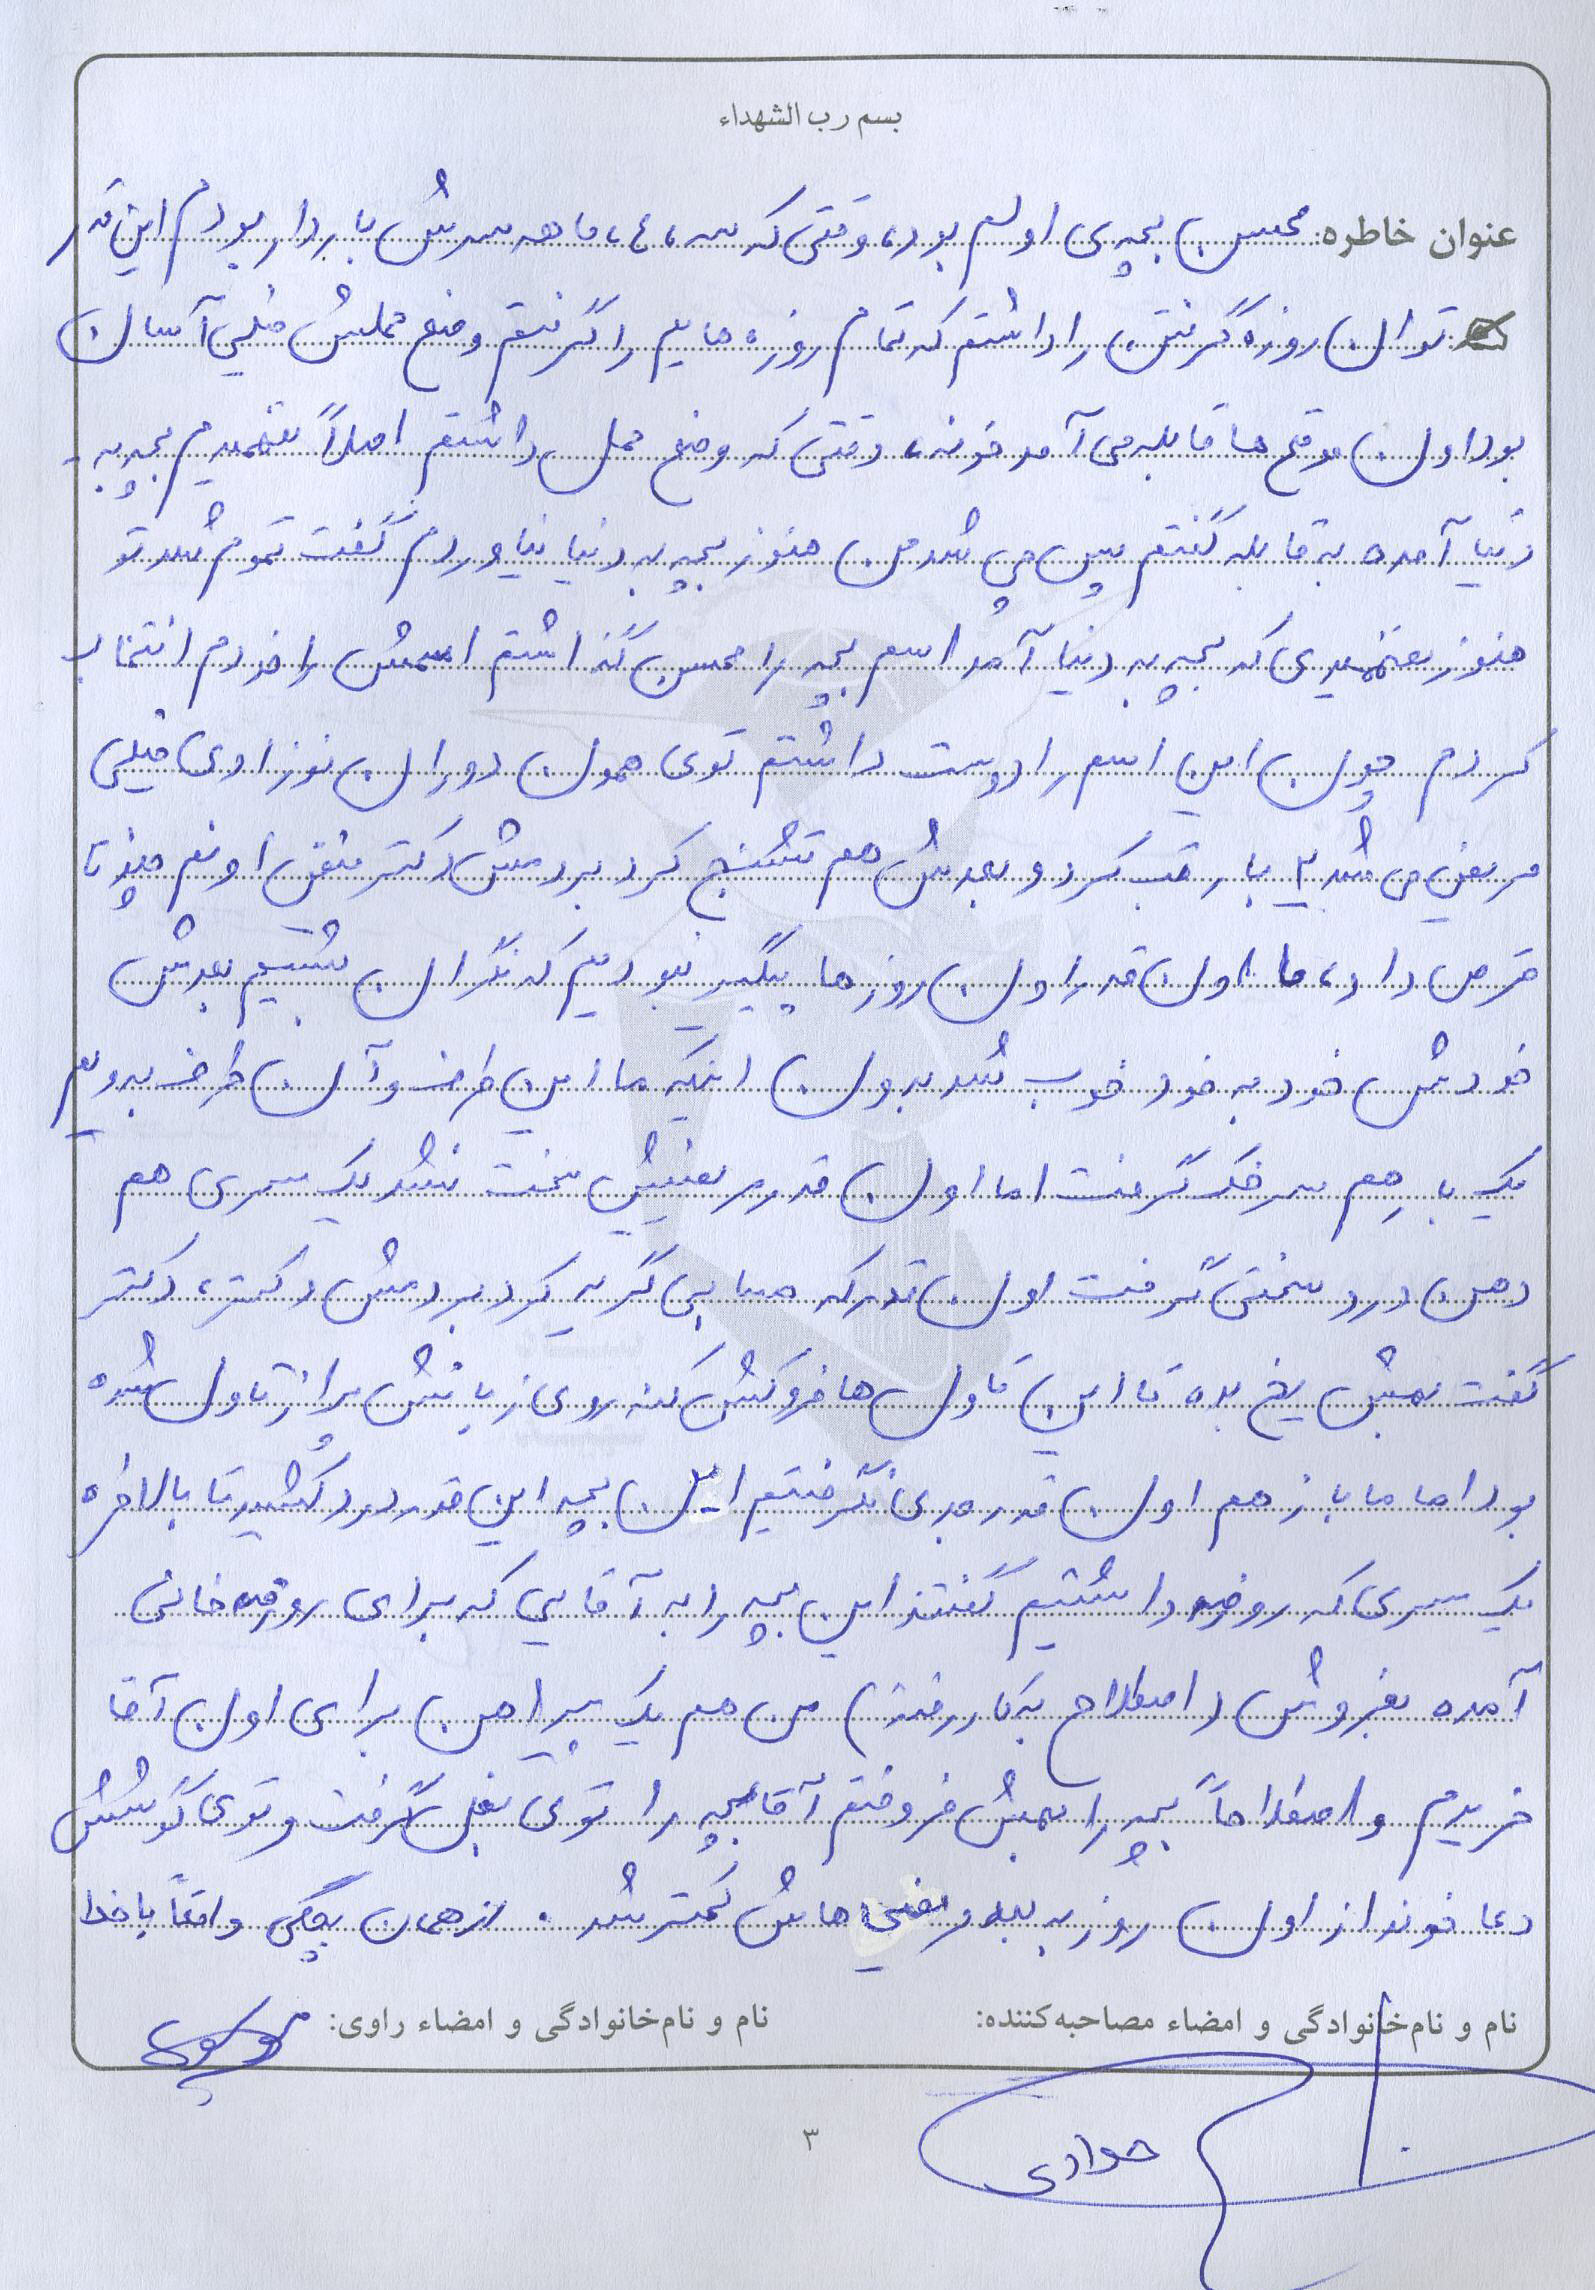 بسم رب الشهداء
عنوان خاطره: محسن بچه‌ی اولم بود، وقتی که ۳، ۴، ماهه سرش باردار بودم این قدر
توان روزه گرفتن را داشتم که تمام روزه هایم را گرفتم وضع حملش خیلی آسان
بود اون موقع ها قابله می آمد خونه، وقتی که وضع حمل داشتم اصلاً نفهمیدم بچه به
دنیا آمده به قابله گفتم پس چی شد من هنوز بچه به دنیا نیاوردم گفت تموم شد تو
هنوز نفهمیدی که بچه به دنیا آمد اسم بچه را محسن گذاشتم اسمش را خودم انتخاب
کردم چون این اسم را دوست داشتم توی همون دوران نوزادی خیلی
مریض می شد ۲ بار تب کرد و بعدش هم تشنج کرد بردمش دکتر متقن اونم چند تا
قرص داد، ما اون قدر اون روزها پیگیر نبودیم که نگران بشیم بعدش
خودش خود به خود خوب شد بدون اینکه ما این طرف و آن طرف برویم
یک بار هم سرخک گرفت اما اون قدر مریضیش سخت نشد یک سری هم
دهن درد سختی گرفت اون قدر که حسابی گریه کرد بردمش دکتر، دکتر
گفت بهش یخ بده تا این تاول ها فروکش کنه روی زبانش پر از تاول شده
بود اما ما باز هم اون قدر جدی نگرفتیم این بچه این قدر درد کشید تا بالاخره
یک سری که روضه داشتیم گفتند این بچه را به آقایی که برای روضه خانی
آمده بفروش (اصطلاح به کار رفته) من هم یک پیراهن برای اون آقا
خریدم و اصطلاحاً بچه را بهش فروختم آقا بچه را توی بغل گرفت و توی گوشش
دعا خوند از اون روز به بعد مریضی هاش کمتر شد. از همان بچگی واقعاً با خدا
نام و نام‌خانوادگی و امضاء مصاحبه‌کننده:
نام و نام‌خانوادگی و امضاء راوی:
موسوی
جوادی
۳